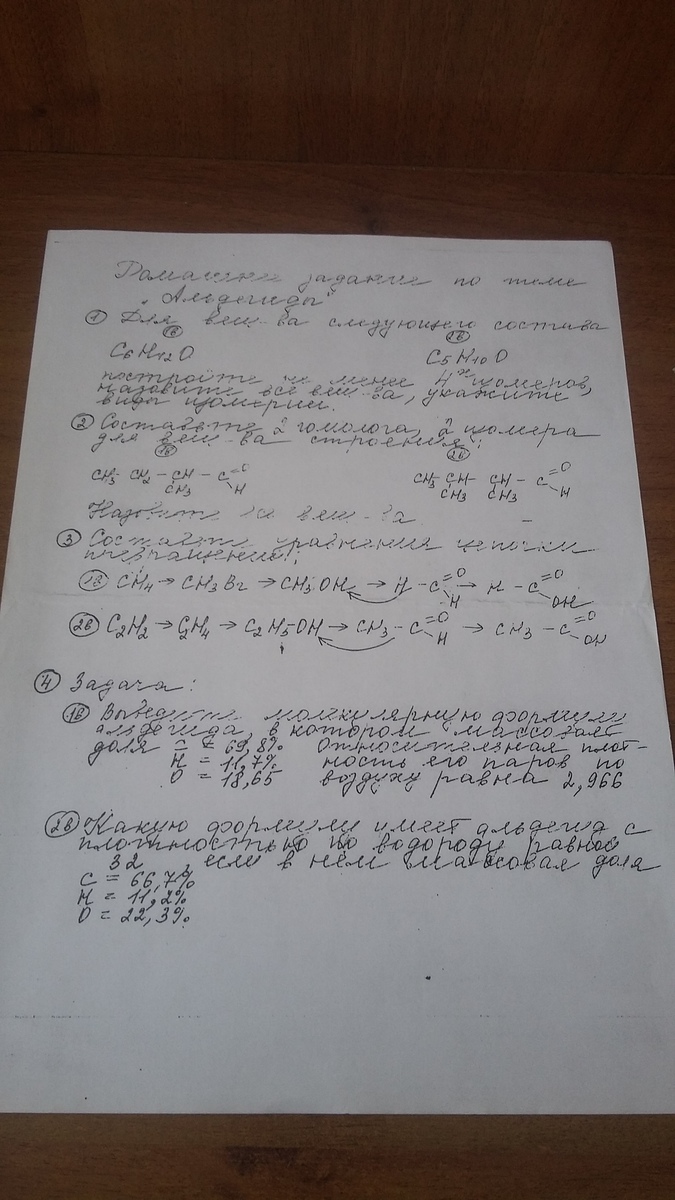 Домашнее задание по теме
"Альдегиды"
① Для вещ-ва следующего состава
1в 2в
C6H12O C5H10O
постройте не менее 4х изомеров,
назовите все вещ-ва, укажите
виды изомерии.
② Составьте 2 гомолога, 2 изомера
для вещ-ва строения:
1в 2в
CH3 - CH2 - CH - C =O CH3 - CH - CH - C =O
CH3 H CH3 CH3 H
Назовите все вещ-ва
③ Составьте уравнения цепочки
превращений:
1в CH4 → CH3Br → CH3OH → H - C =O H → H - C =O OH
2в C2H2 → C2H4 → C2H5OH → CH3 - C =O H → CH3 - C =O OH
④ Задача:
1в Выведите молекулярную формулу
альдегида, в котором массовая
доля C = 69,8% Относительная плот-
H = 11,7% ность его паров по
O = 18,65 воздуху равна 2,966
2в Какую формулу имеет альдегид с
плотностью по водороду равной
32, если в нём массовая доля
C = 66,7%
H = 11,2%
O = 22,3%